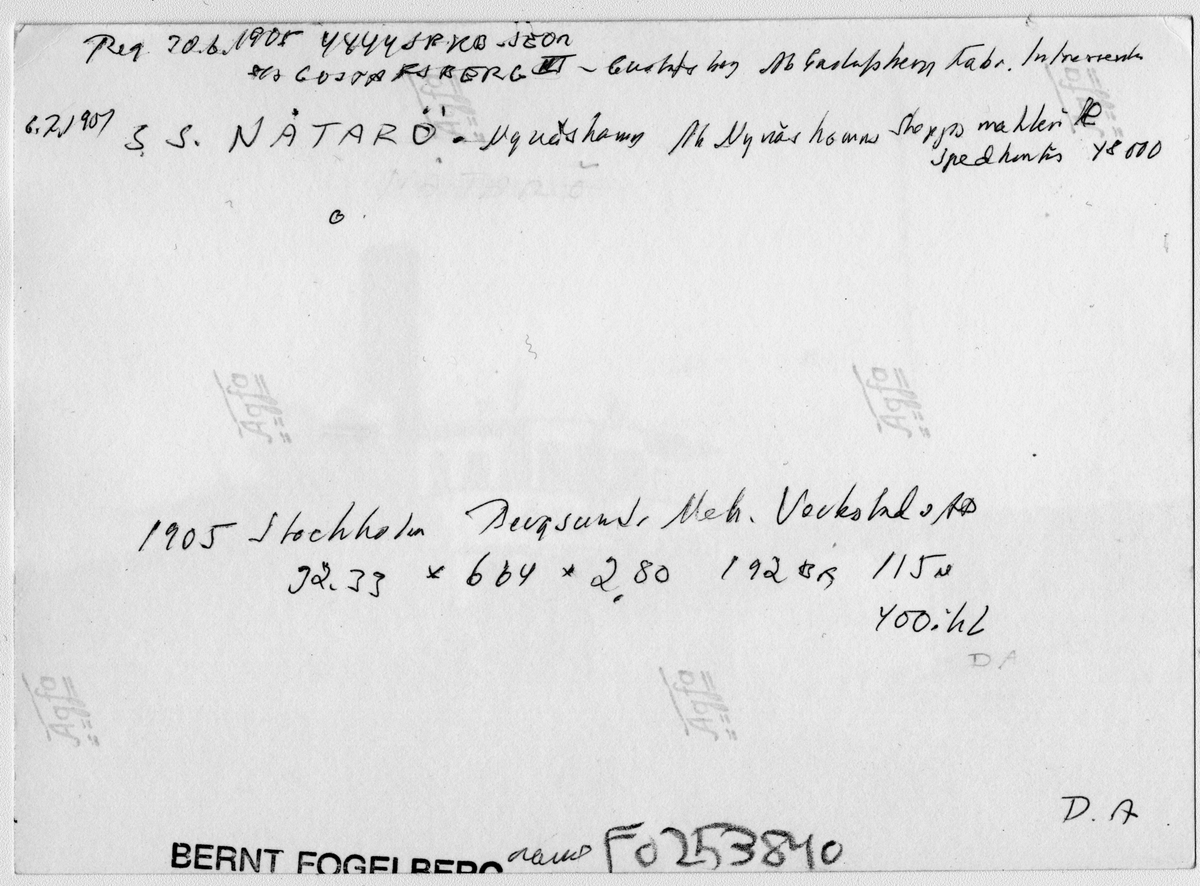 Reg 30.6.1905 4444 JBKB
S/S GUSTAFSBERG VII - Gustafsberg AB Gustafsberg Fabr. Intressenter
6.7.1901 S S. NÅTARÖ - Nynäshamn Ab Nynäshamns Skepps mäkleri
Sped 48 000
NÅTARÖ
Agfa Agfa
Agfa Agfa
1905 Stockholm Bergsunds Mek. Verkstads AB
32.33 * 664 * 2,80 192 BR 115 N
400 ihk
D A
Agfa Agfa
D. A
BERNT FOGELBERG Fo253840